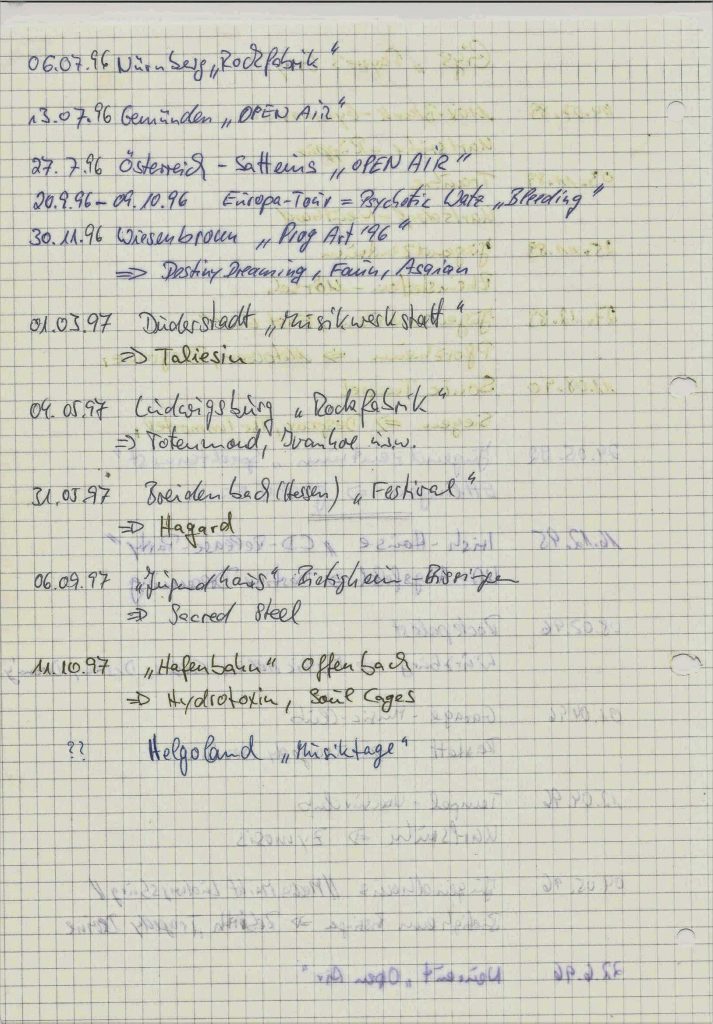 06.07.96 Nürnberg „Rockfabrik“
13.07.96 Gemünden „OPEN AIR“
27.7.96 Österreich - Satteins „OPEN AIR“
20.9.96 - 09.10.96 Europa-Tour = Psychotic Waltz „Bleeding“
30.11.96 Wiesenbronn „Prog Art '96“
⇒ Destiny Dreaming, Faun, Asgaian
01.03.97 Duderstadt „Musikwerkstatt“
⇒ Taliesin
04.05.97 Ludwigsburg „Rockfabrik“
⇒ Totenmond, Ivanhoe usw.
31.05.97 Breidenbach (Hessen) „Festival“
⇒ Hagard
06.09.97 „Jugendhaus“ Bietigheim-Bissingen
⇒ Sacred Steel
11.10.97 „Hafenbahn“ Offenbach
⇒ Hydrotoxin, Soul Cages
?? Helgoland „Musiktage“